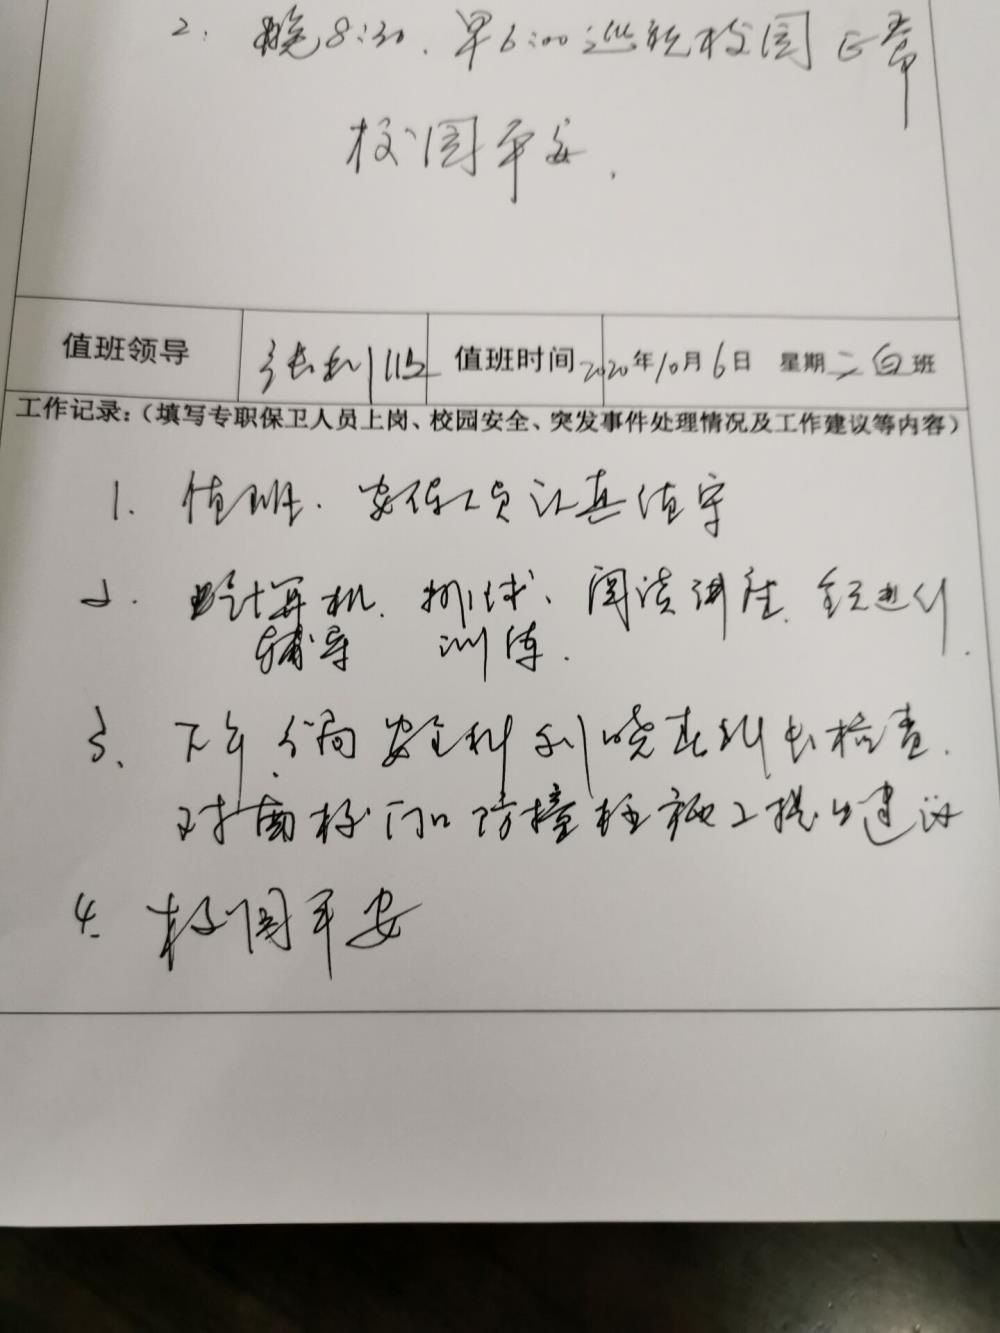 2. 晚8:30、早6:00巡视校园正常
校园平安.
值班领导 张 值班时间 2020年10月6日 星期二 白班
工作记录:(填写专职保卫人员上岗、校园安全、突发事件处理情况及工作建议等内容)
1. 值班、安保人员认真值守
2. 计算机、排球、阅读 进行
辅导 训练.
3、下午分局安全科刘晓春科长检查.
对南校门口防撞柱施工提出建议
4. 校园平安